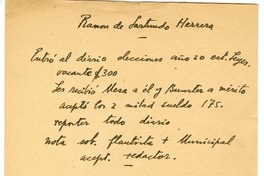 Ramon de Sartundo Herrera
Entró al diario elecciones año 20 est. Leyes
vacante $300
Les recibió Mesa a él y Bunster a mérito
aceptó los 2 mitad sueldo 175.
reporter todo diario
nota sob. flautista + Municipal
acept. redactor.